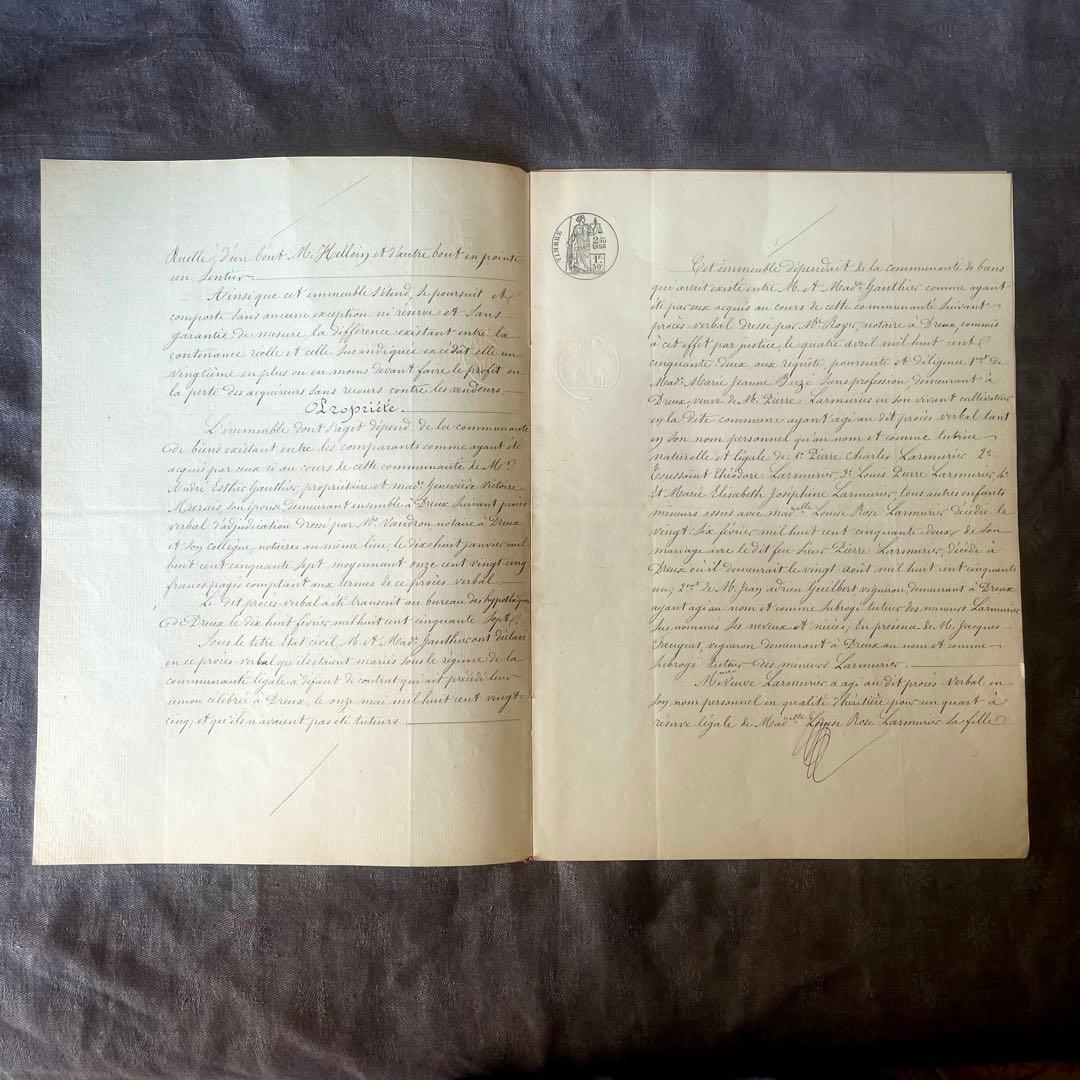 Ruelle, d'un bout M. Halloin et d'autre bout en pointe
un Sentier.
Ainsi que cet immeuble s'étend, se poursuit et
comporte sans aucune exception ni réserve et sans
garantie de mesure, la différence existant entre la
contenance réelle et celle sus indiquée excédât elle un
vingtième en plus ou en moins devant faire le profit ou
la perte des acquéreurs sans recours contre les vendeurs.
Propriété.
L'immeuble dont s'agit dépend de la communauté
de biens existant entre les comparants comme ayant été
acquis par eux ci au cours de cette communauté de Mr
André Esther Gauthier, propriétaire et made Geneviève Victoire
Marais, son épouse demeurant ensemble à Dreux suivant procès
verbal d'adjudication dressé par Me Vaudron notaire à Dreux
et son collègue, notaires au même lieu, le dix huit janvier mil
huit cent cinquante sept moyennant onze cent vingt cinq
francs payés comptant aux termes de ce procès verbal.
Le dit procès verbal a été transcrit au bureau des hypothèques
de Dreux le dix huit février mil huit cent cinquante sept.
Sous le titre état civil, M. et Made Gauthier ont déclaré
en ce procès verbal qu'ils étaient mariés sous le régime de la
communauté légale à défaut de contrat qui ait précédé leur
union célébrée à Dreux, le onze mai mil huit cent vingt-
cinq; et qu'ils n'avaient pas été tuteurs.
TIMBRE
2/10
EN SUS
1F
50C
Cet immeuble dépendait de la communauté de biens
qui avait existé entre M. et Made Gauthier comme ayant
été par eux acquis au cours de cette communauté suivant
procès verbal dressé par Me Royer notaire à Dreux, commis
à cet effet par justice, le quatre avril mil huit cent
cinquante deux, aux requête, poursuite et diligence 1ent de
Made Marie Jeanne Buze sans profession, demeurant à
Dreux, veuve de M. Pierre Larmurier en son vivant cultivateur
en la dite commune ayant agi au dit procès verbal tant
en son nom personnel qu'au nom et comme tutrice
naturelle et légale de: 1º Pierre Charles Larmurier 2º
Toussaint Théodore Larmurier, 3º Louis Pierre Larmurier, 4º
Et Marie Elisabeth Joséphine Larmurier, tous autres enfants
mineurs issus avec madelle Louise Rose Larmurier décédée le
vingt-six février mil huit cent cinquante deux, de son
mariage avec le dit feu sieur Pierre Larmurier, décédé à
Dreux où il demeurait le vingt août mil huit cent cinquante
un; 2ent de M. Jean Adrien Guilbert vigneron, demeurant à Dreux
ayant agi au nom et comme subrogé tuteur des mineurs Larmurier
sus nommés ses neveux et nièce; En présence de M. Jacques
Jauquet, vigneron demeurant à Dreux au nom et comme
subrogé tuteur des mineurs Larmurier.
Mme Veuve Larmurier a agi au dit procès verbal en
son nom personnel en qualité d'héritière pour un quart à
réserve légale de Madelle Louise Rose Larmurier sa fille